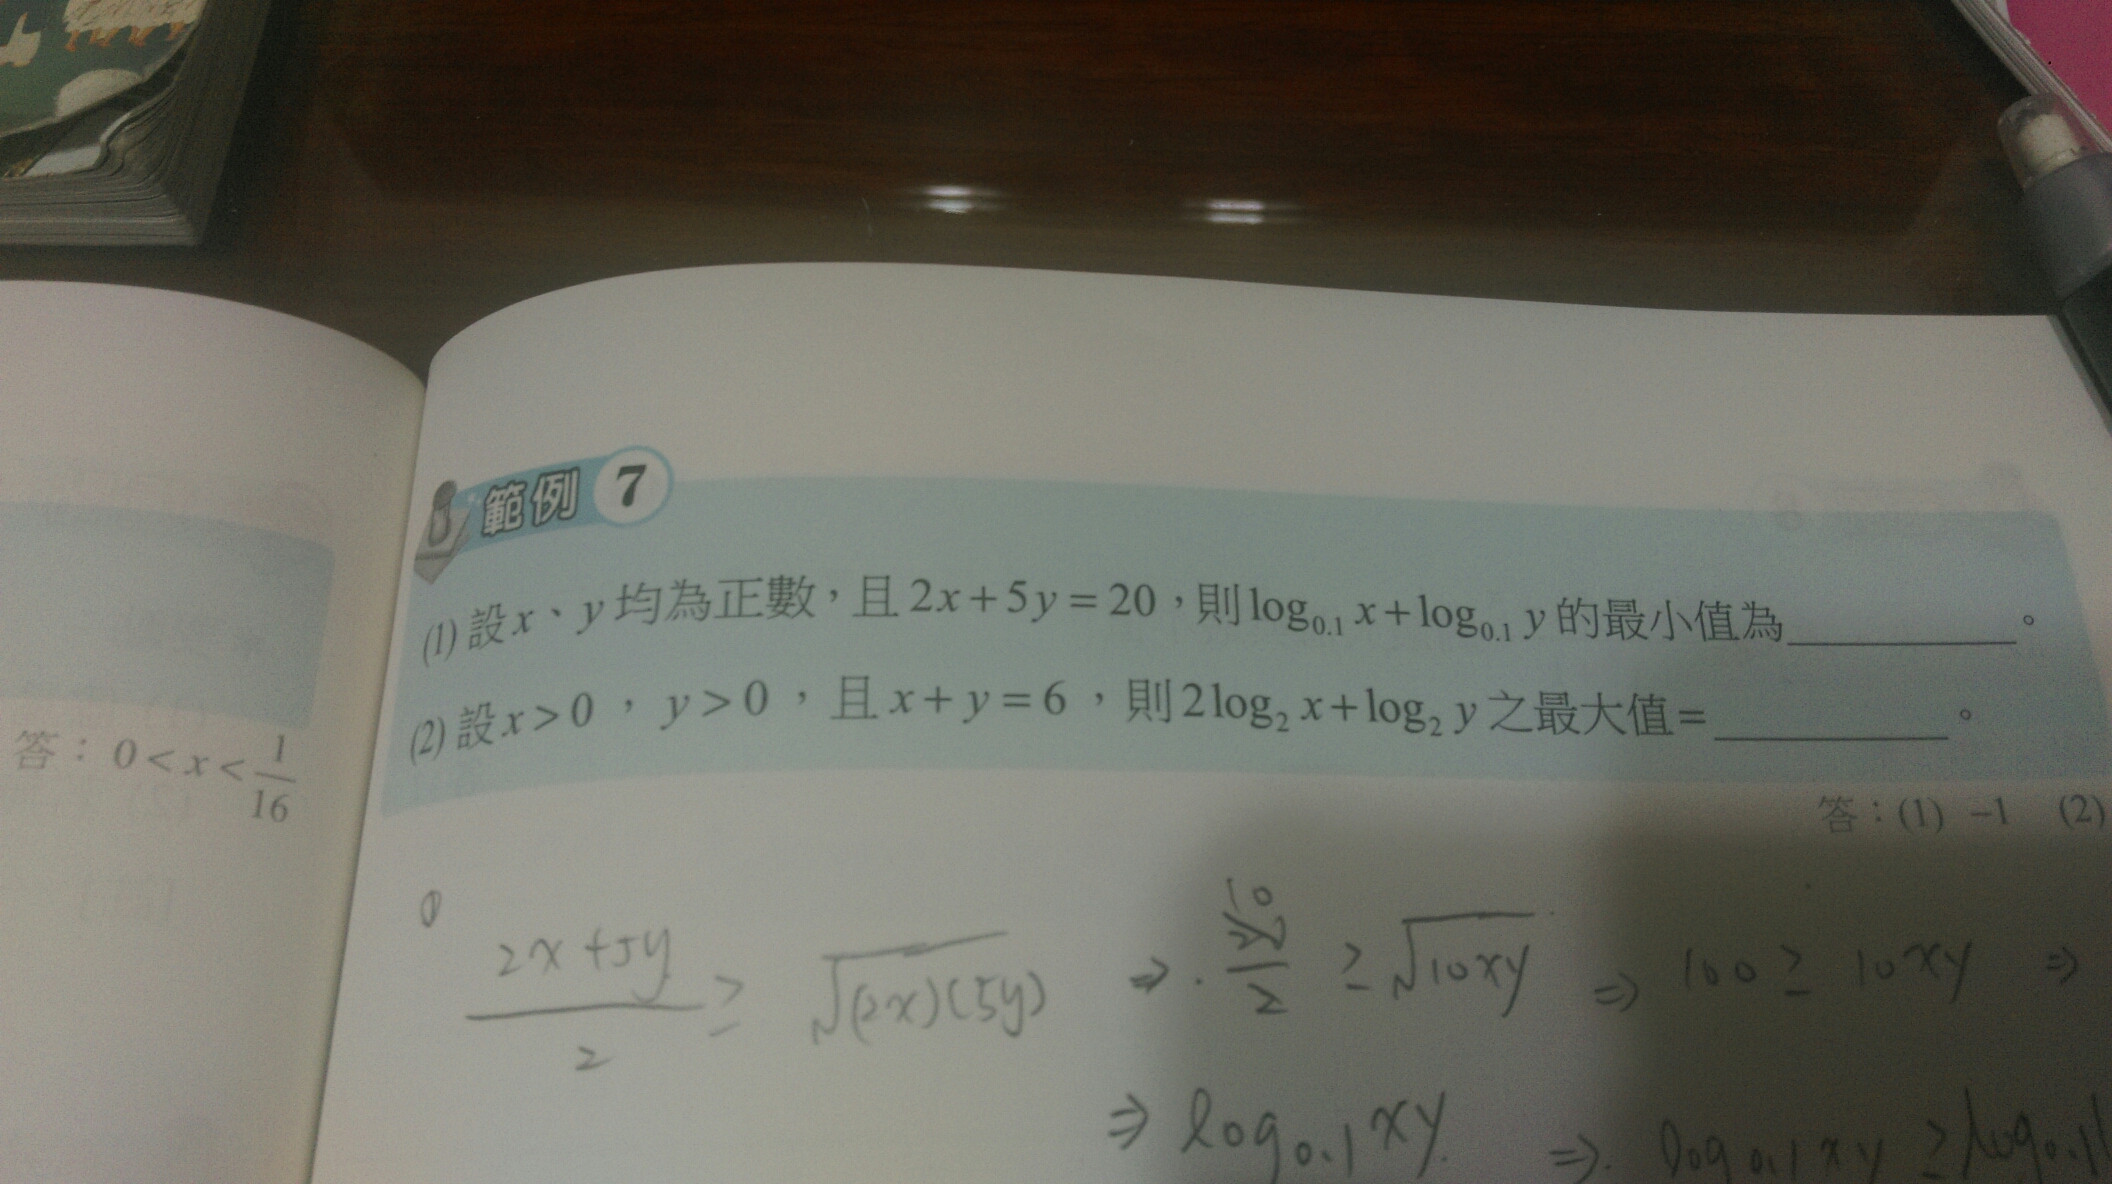 範例 7
(1) 設 x、y 均為正數，且 2x+5y=20，則 log₀.₁ x+log₀.₁ y 的最小值為______。
(2) 設 x>0，y>0，且 x+y=6，則 2log₂ x+log₂ y 之最大值=______。
答：0<x<1/16
答：(1) −1 (2)
① (2x+5y)/2 ≥ √(2x)(5y) ⇒ 10/2 ≥ √10xy ⇒ 100 ≥ 10xy ⇒
⇒ log₀.₁ xy ⇒ log₀.₁ xy ≥ log₀.₁